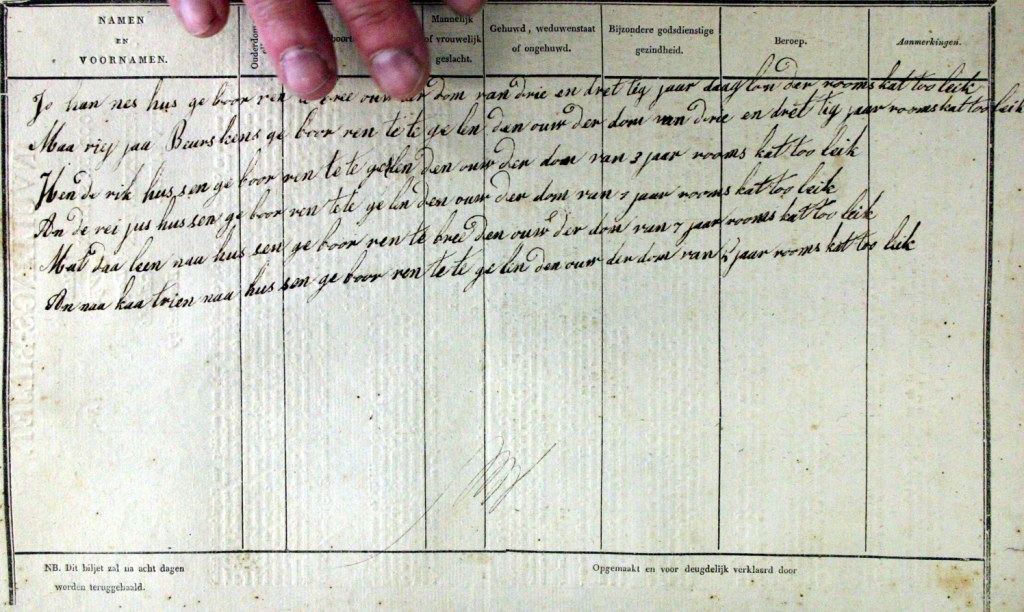 NAMEN
EN
VOORNAMEN.
Ouderdom
Mannelijk
of vrouwelijk
geslacht.
Gehuwd, weduwenstaat
of ongehuwd.
Bijzondere godsdienstige
gezindheid.
Beroep.
Aanmerkingen.
Jo han nes hus ge boor ren te bree ouw der dom van drie en dret tig jaar daag lon der rooms kat too leik
Maa riej jaa Beurs kens ge boor ren te te ge len den ouw der dom van drie en dret tig jaar rooms kat too leik
Hen de rik hus sen ge boor ren te te ge len den ouw der dom van 3 jaar rooms kat too leik
An de rei jus hus sen ge boor ren te te ge len den ouw der dom van 7 jaar rooms kat too leik
Mat daa leen naa hus sen ge boor ren te bree den ouw der dom van 7 jaar rooms kat too leik
An naa kaa trien naa hus sen ge boor ren te te ge len den ouw der dom van jaar rooms kat too leik
NB. Dit biljet zal na acht dagen
worden teruggehaald.
Opgemaakt en voor deugdelijk verklaard door